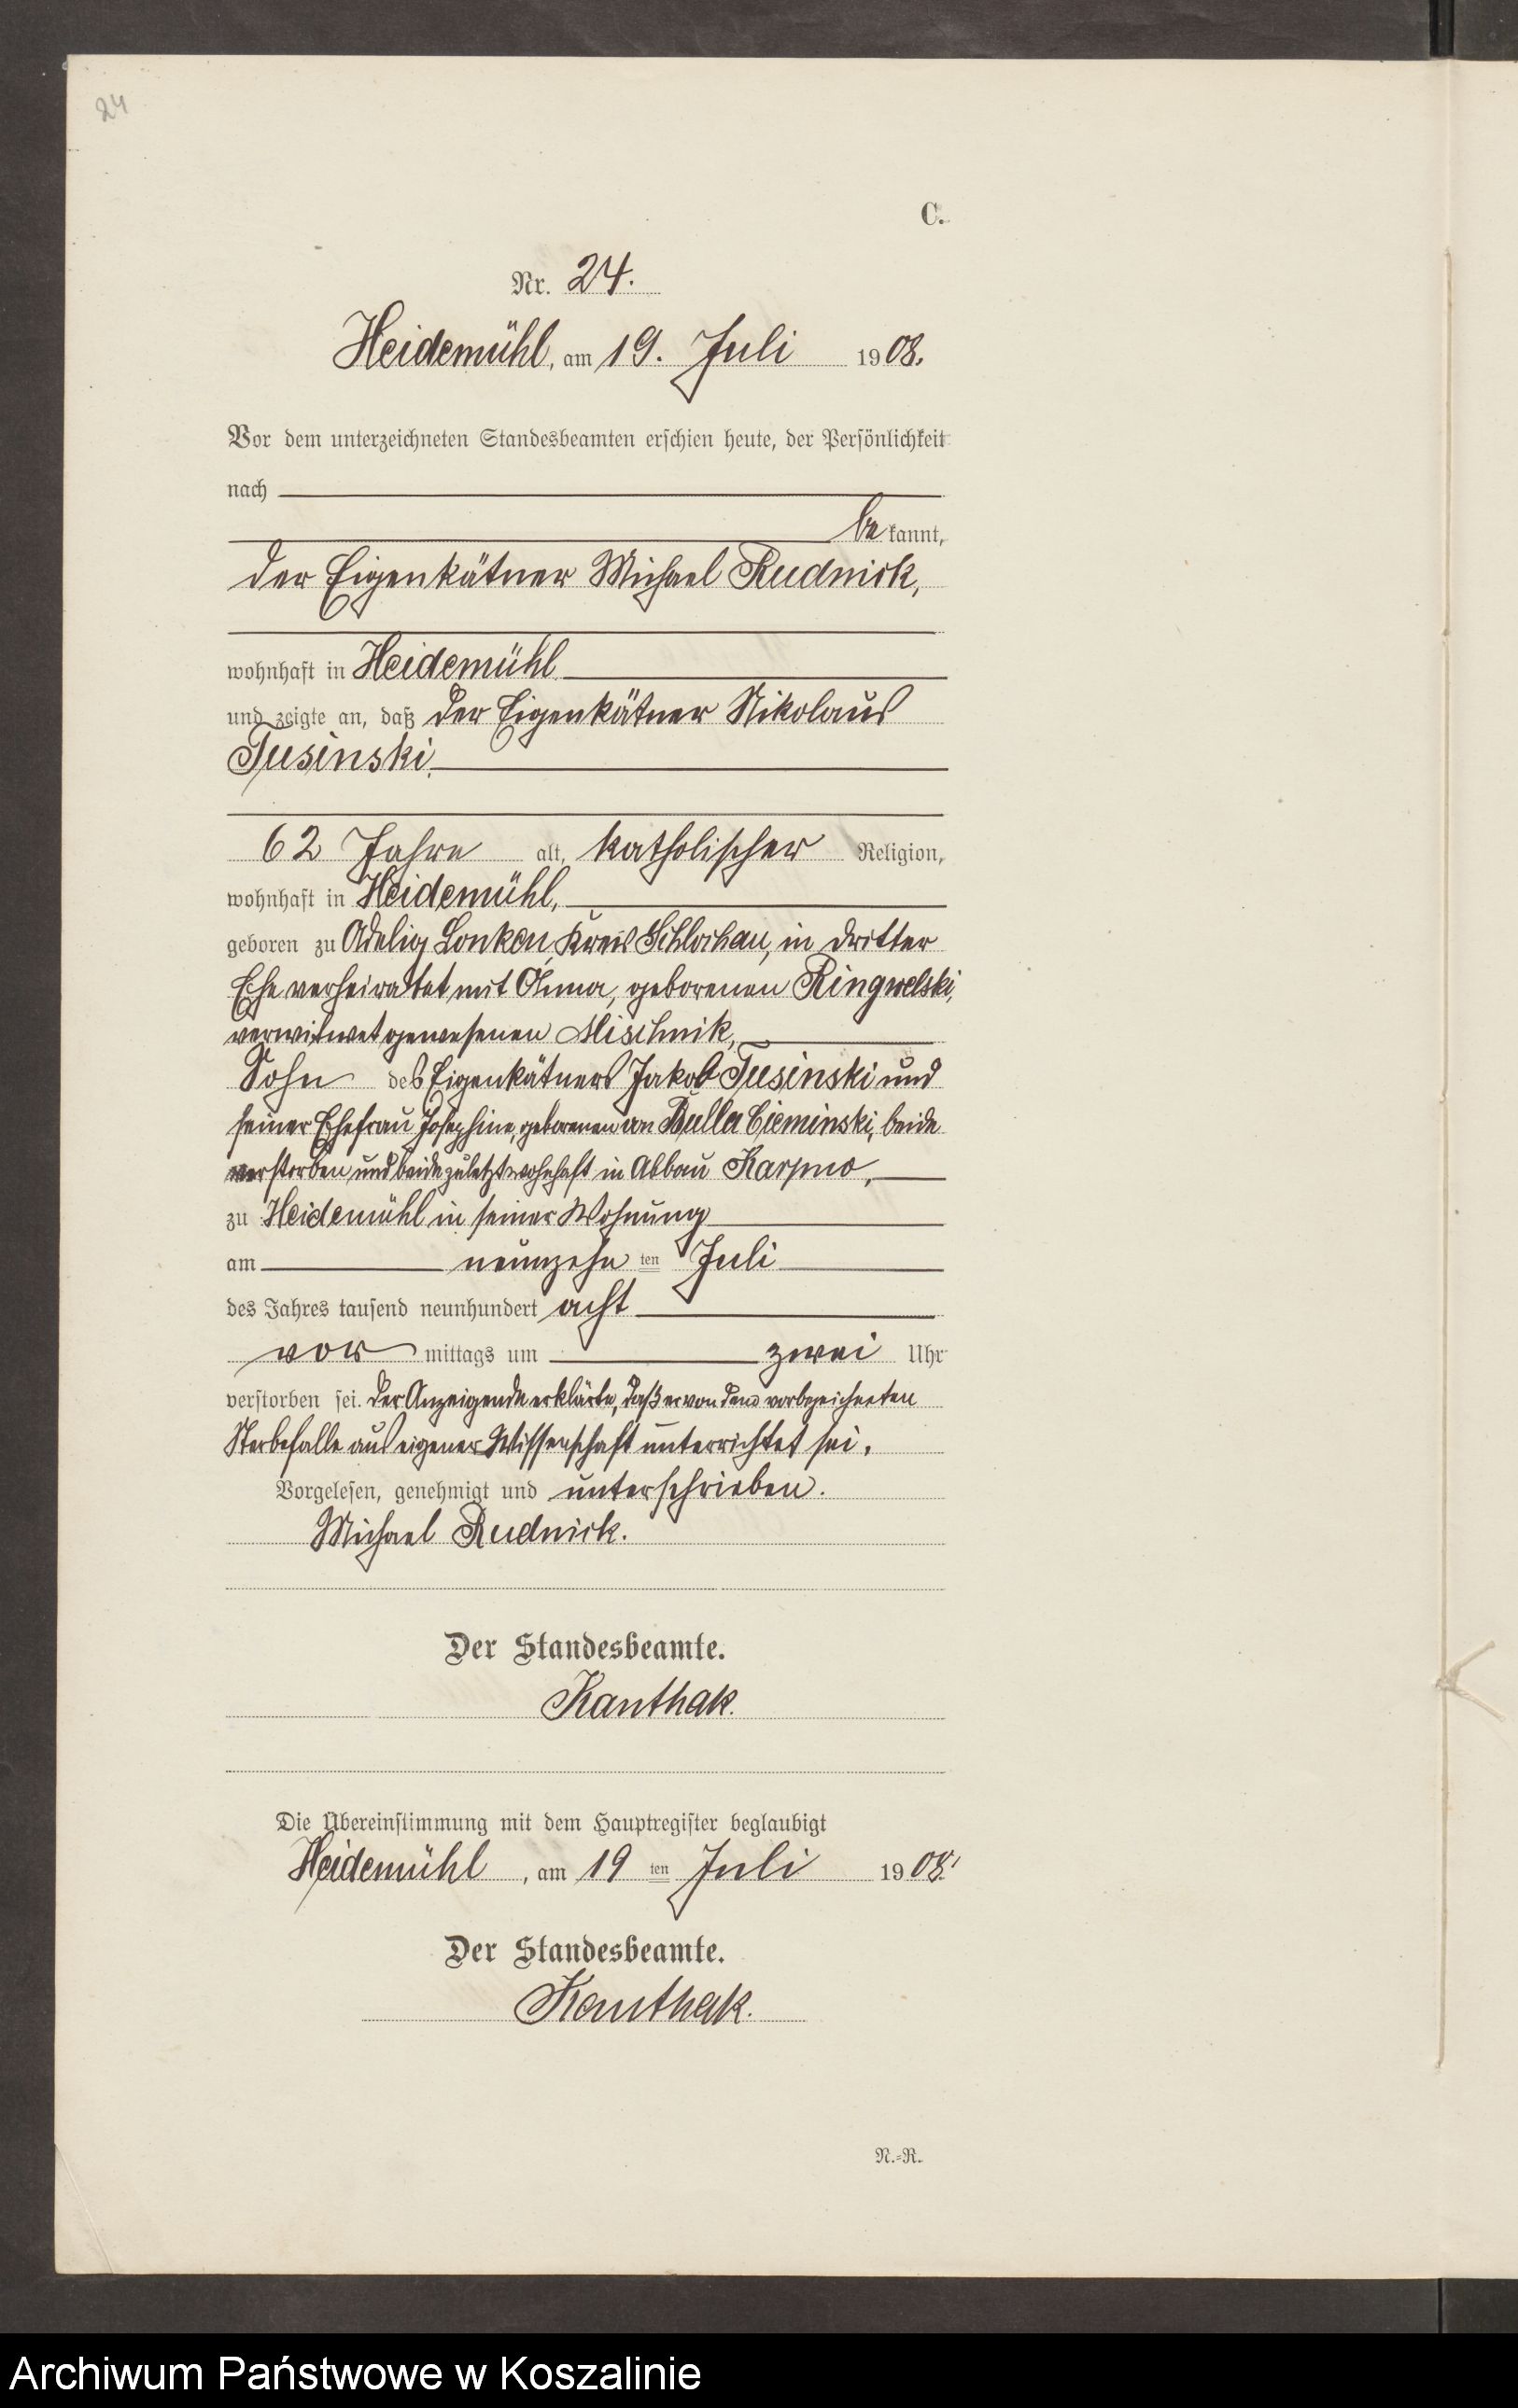 24
C.
Nr. 24.
Heidemühl, am 19. Juli 1908.
Vor dem unterzeichneten Standesbeamten erschien heute, der Persönlichkeit
nach
bekannt,
der Eigenkätner Michael Rudnick,
wohnhaft in Heidemühl
und zeigte an, daß der Eigenkätner Nikolaus
Tusinski,
62 Jahre alt, katholischer Religion,
wohnhaft in Heidemühl,
geboren zu Adelig Lonken, Kreis Schlochau, in dritter
Ehe verheiratet mit Anna, geborenen Ringwelski,
verwitwet gewesenen Mischnik,
Sohn des Eigenkätners Jakob Tusinski und
seiner Ehefrau Josephine, geborenen von Bulla Cieminski, beide
verstorben und beide zuletzt wohnhaft in Abbau Karpno,
zu Heidemühl in seiner Wohnung
am neunzehnten Juli
des Jahres tausend neunhundert acht
vormittags um zwei Uhr
verstorben sei. Der Anzeigende erklärte, daß er von dem vorbezeichneten
Sterbefalle aus eigener Wissenschaft unterrichtet sei.
Vorgelesen, genehmigt und unterschrieben.
Michael Rudnick.
Der Standesbeamte.
Kanthak.
Die Übereinstimmung mit dem Hauptregister beglaubigt
Heidemühl, am 19ten Juli 1908.
Der Standesbeamte.
Kanthak.
N.=R.
Archiwum Państwowe w Koszalinie